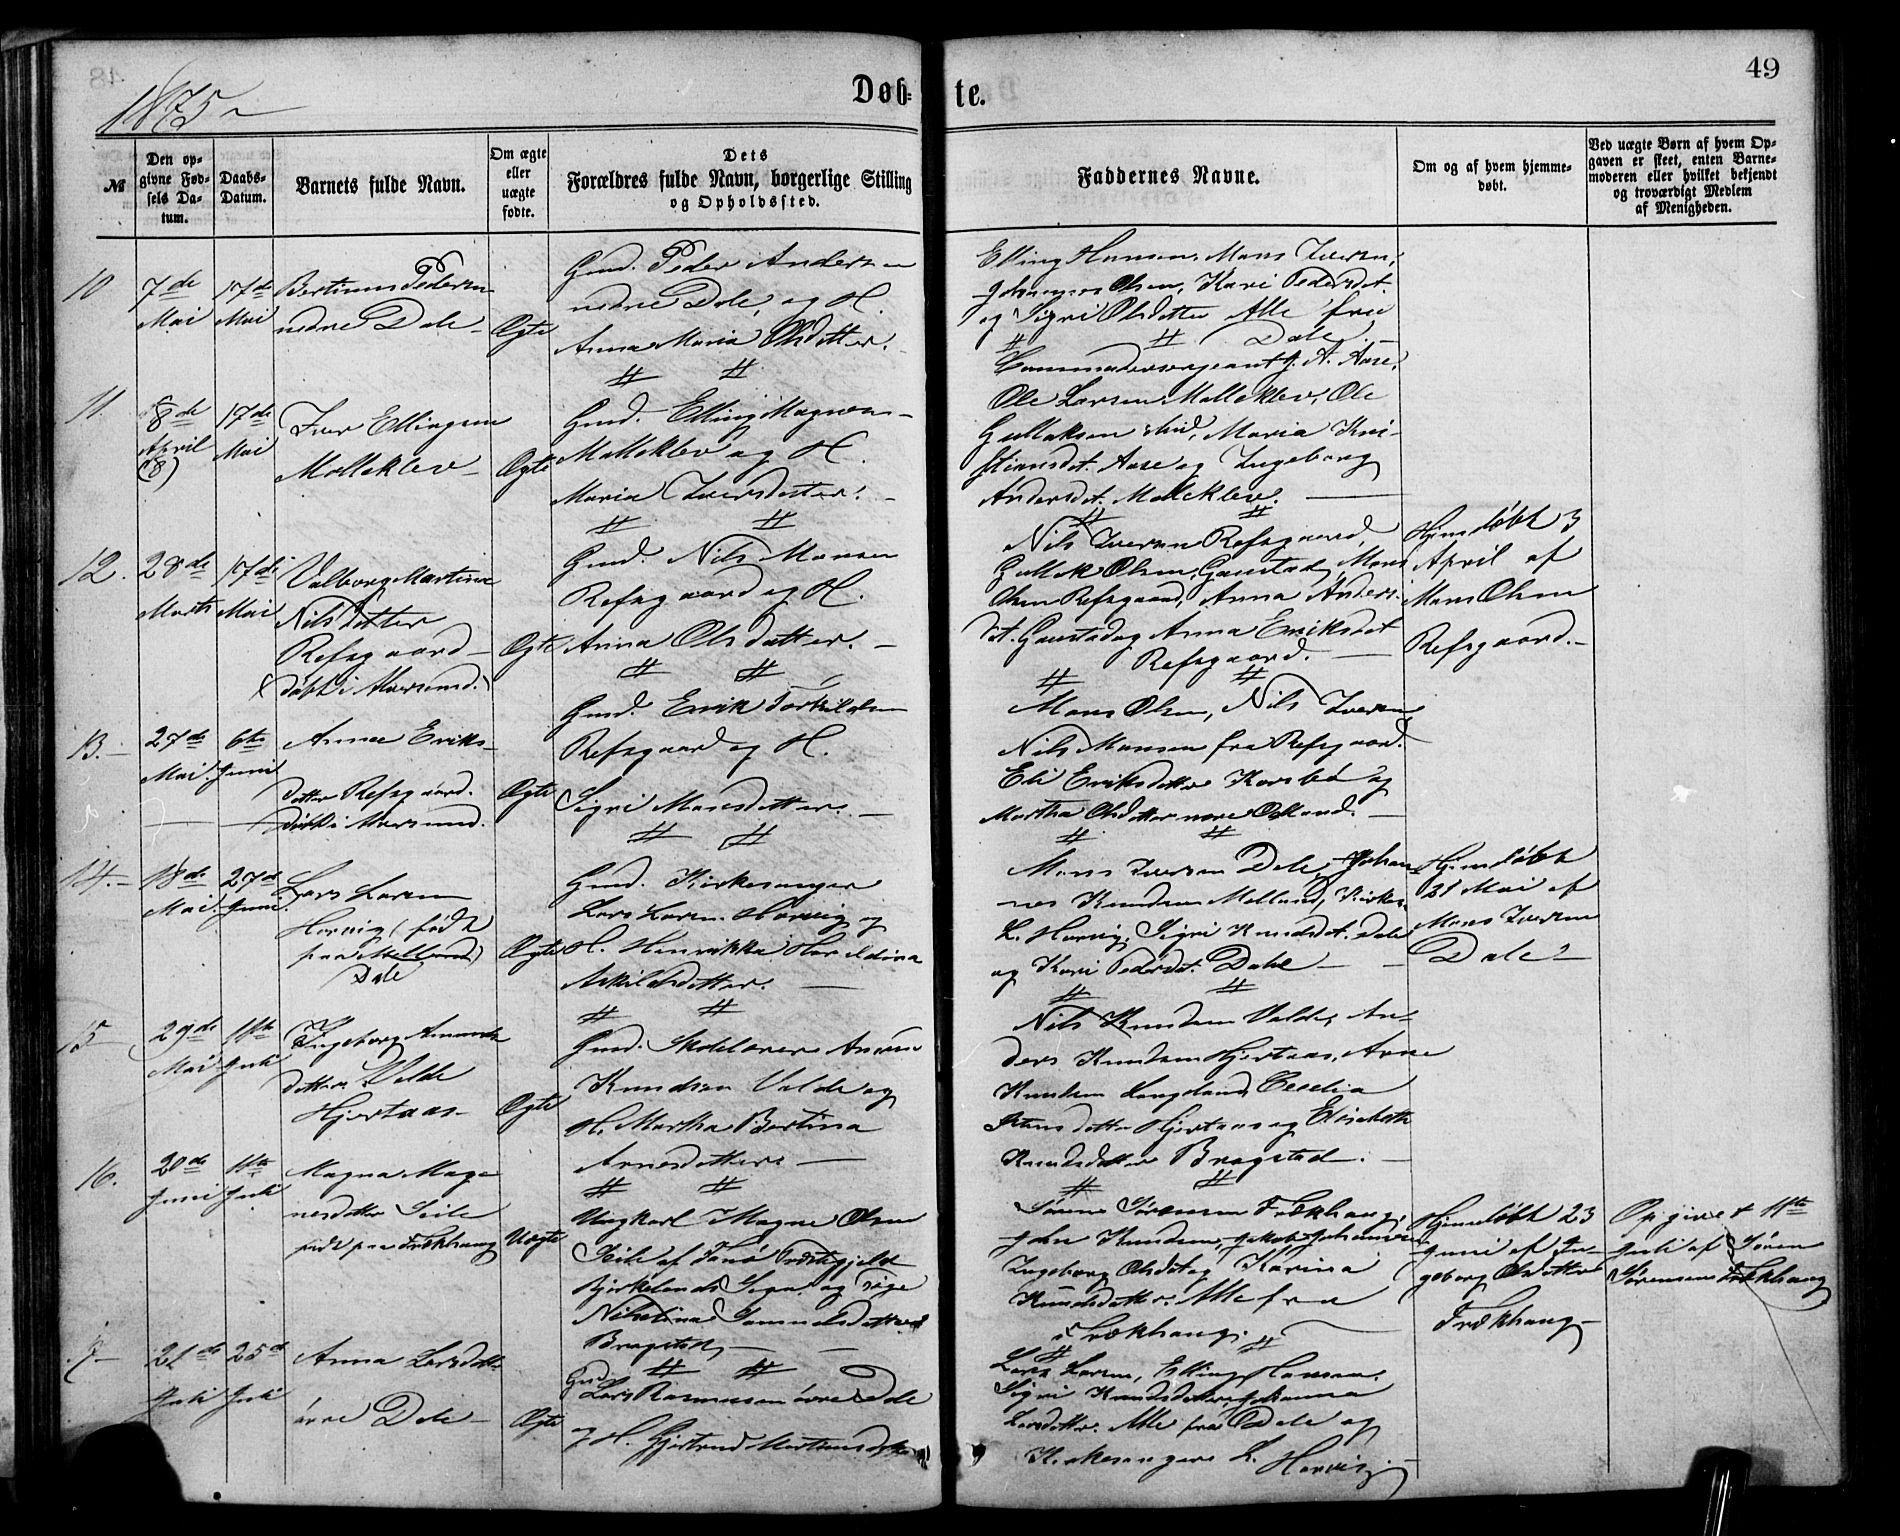 49
1875
Døb-te.
№
Den opgivne Fødsels Datum.
Daabs-Datum.
Barnets fulde Navn.
Om ægte eller uægte fødte.
Dets Forældres fulde Navn, borgerlige Stilling og Opholdssted.
Faddernes Navne.
Om og af hvem hjemmedøbt.
Ved uægte Børn af hvem Opgaven er skeet, enten Barnemoderen eller hvilket bekjendt og troværdigt Medlem af Menigheden.
10
7de Mai
17de Mai
Bertinus Pedersen
nedre Dale
Ægte
Gmd. Peder Andersen
nedre Dale, og H.
Anna Maria Olsdatter.
Elling Hansen, Mons Iversen,
Johannes Olsen, Kari Pedersdt.
og Sigri Olsdatter Alle fra
Dale
11.
8de April (8)
17de Mai
Iver Ellingsen
Molleklev
Ægte
Gmd. Elling Magnesen
Molleklev og H.
Maria Iversdatter.
Commandersergeant J. A. Aase,
Ole Larsen Molleklev, Ole
Gulleksen ibid, Maria Kri-
stiansdt. Aase og Ingeborg
Andersdt. Molleklev.
12.
28de Marts
17de Mai
Valborg Martine
Nilsdatter
Refsgaard
(døbt i Alversund.)
Ægte
Gmd. Nils Monsen
Refsgaard og H.
Anna Olsdatter.
Nils Iversen Refsgaard,
Gullek Olsen Gaustad, Mons
Olsen Refsgaard, Anna Anders-
dt. Gaustad og Anna Eriksdt
Refsgaard.
Hjemdøbt 3
April af
Mons Olsen
Refsgaard.
13.
27de Mai.
6te Juni
Anna Eriks-
datter Refsgaard.
døbt i Alversund.
Ægte
Gmd. Erik Torkildsen
Refsgaard og H.
Sigri Monsdatter.
Mons Olsen, Nils Iversen
Nils Monsen fra Refsgaard.
Eli Eriksdatter og
Martha Olsdatter
14.
18de Mai.
27de Juni.
Lars Larsen
Horvig (født
paa Melland)
Dale
Ægte
Gmd. Kirkesanger
Lars Larsen Horvig og
H. Henrikka Haraldina
Askildsdatter.
Mons Iversen Dale, Johan-
nes Knudsen Melland, Kirkes.
L. Horvig, Sigri Knudsdt. Dale
og Kari Pedersdt. Dale
Hjemdøbt
21 Mai af
Mons Iversen
Dale
15
29de Mai
11te Juli
Ingeborg
datter Velde
Hjertaas
Ægte
Gmd. Skolelærer
Knudsen Velde og
H. Martha Bertina
Arnesdatter
Nils Knudsen Velde, An-
ders Knudsen Hjertaas, Arne
Knudsen Langeland, Cecelia
datter Hjertaas og Elisabeth
Knudsdatter Bragstad.
16.
20de Juni
11te Juli
Magna Mag-
nesdatter Seile
født paa Trækhaug
Uægte
Ungkarl Magne Olsen
Seile af Hosø Præstegjeld
Bjørkelands Sogn og Pige
Nikolina Samuelsdatter
Bragstad
Søren Sørensen Trækhaug,
John Knudsen, Jakob Johannesen
Ingeborg Olsdt og Karina
Knudsdatter. Alle fra
Trækhaug.
Hjemdøbt 23
Juni af In-
geborg Olsdatter
Trækhaug
Opgivet 11te
Juli af Søren
Sørensen Trækhaug
21de Juli
25de Juli
Anna Larsdatter
øvre Dale
Ægte
Gmd. Lars Rasmussen øvre Dale
og H. Gjertrud
Lars Larsen, Elling Hansen,
Sigri Knudsdatter, Johanna
Larsdatter. Alle fra Dale og
Kirkesanger L. Horvig